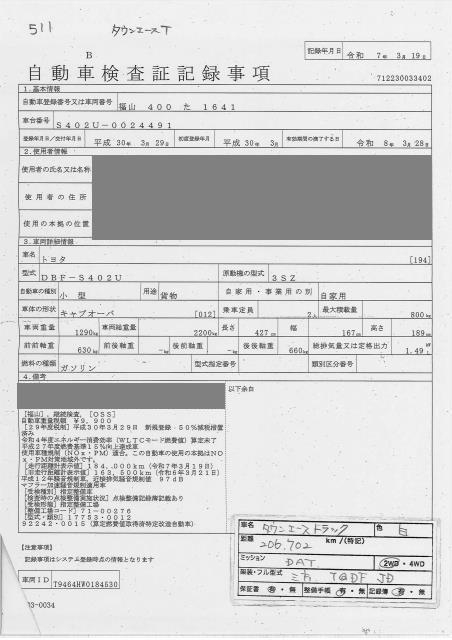 511 タウンエースT
記録年月日 令和 7年 3月 19日
B
自動車検査証記録事項
712230033402
1.基本情報
自動車登録番号又は車両番号 福山 400 た 1641
車台番号 S402U-0024491
登録年月日/交付年月日 平成 30年 3月 29日 初度登録年月 平成 30年 3月 有効期間の満了する日 令和 8年 3月 28日
2.使用者情報
使用者の氏名又は名称
使用者の住所
使用の本拠の位置
3.車両詳細情報
車名 トヨタ [194]
型式 DBF-S402U 原動機の型式 3SZ
自動車の種別 小型 用途 貨物 自家用・事業用の別 自家用
車体の形状 キャブオーバ [012] 乗車定員 2人 最大積載量 800kg
車両重量 1290kg 車両総重量 2200kg 長さ 427cm 幅 167cm 高さ 189cm
前前軸重 630kg 前後軸重 -kg 後前軸重 -kg 後後軸重 660kg 総排気量又は定格出力 1.49
燃料の種類 ガソリン 型式指定番号 類別区分番号
4.備考
以下余白
[福山],継続検査,[OSS]
自動車重量税額 ¥9,900
[29年度税制]平成30年3月29日 新規登録・50%減税措置
済み
令和4年度エネルギー消費効率(WLTCモード燃費値)算定未了
平成27年度燃費基準15%向上達成車
使用車種規制(NOx・PM)適合,この自動車の使用の本拠はNO
x・PM対策地域外です。
[走行距離計表示値]184,000km(令和7年3月19日)
[旧走行距離計表示値]163,500km(令和6年3月21日)
平成12年騒音規制車,近接排気騒音規制値 97dB
マフラー加速騒音規制適用車
[受検種別]指定整備車
[検査時の点検整備実施状況]点検整備記録簿記載あり
[受検形態]指定整備工場
[整備工場コード]71-00276
[型式・類別]17753-0012
92242-0015(算定燃費値取得済特定改造自動車)
【注意事項】
記録事項はシステム登録時点の情報となります
車両ID T9464HW0184530
03-0034
車名 タウンエーストラック 色 白
距離 206,702 km/(特記)
ミッション DAT 2WD・4WD
架装・フル型式
保証書 有・無 整備手帳 有・無 記録簿 有・無